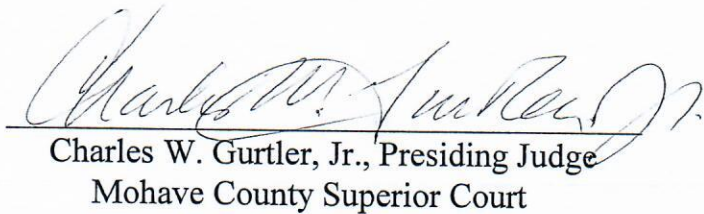 Charles W. Gurtler, Jr.
Charles W. Gurtler, Jr., Presiding Judge
Mohave County Superior Court